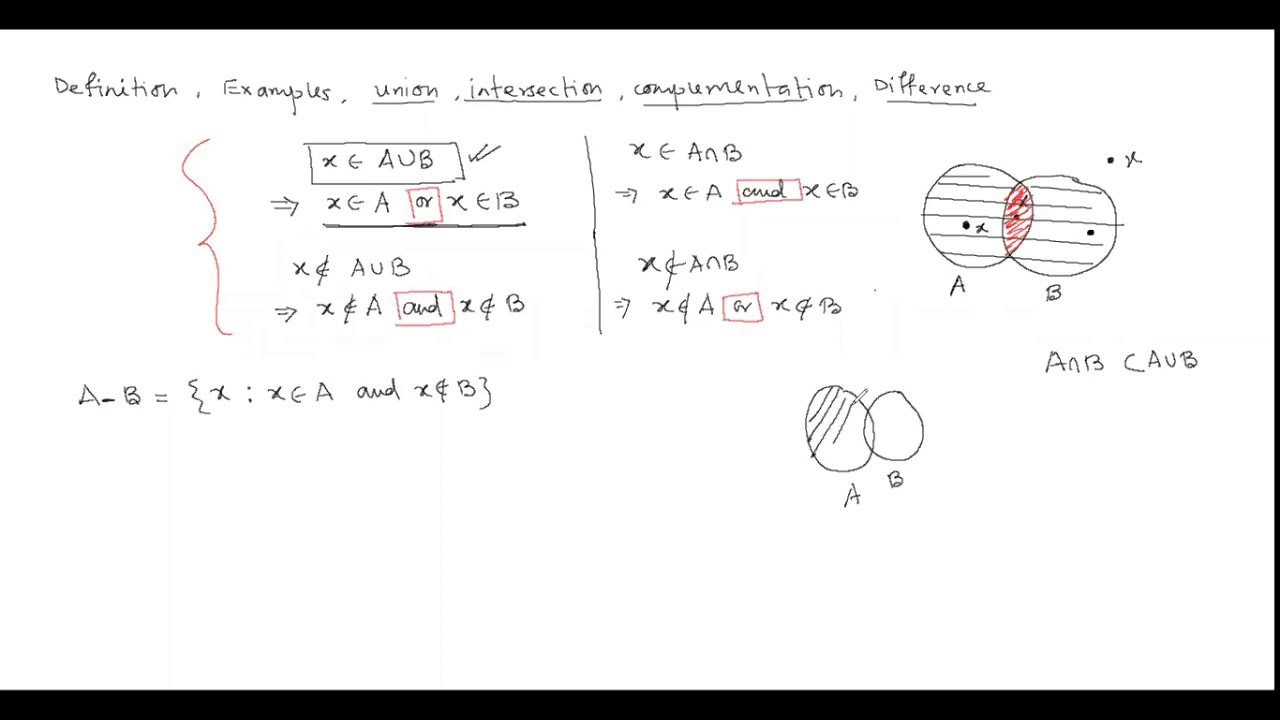 Definition, Examples, union, intersection, complementation, Difference
x ∈ A∪B
⇒ x ∈ A or x ∈ B
x ∉ A∪B
⇒ x ∉ A and x ∉ B
x ∈ A∩B
⇒ x ∈ A and x ∈ B
x ∉ A∩B
⇒ x ∉ A or x ∉ B
x
x
x
A B
A∩B ⊂ A∪B
A - B = {x : x ∈ A and x ∉ B}
A B